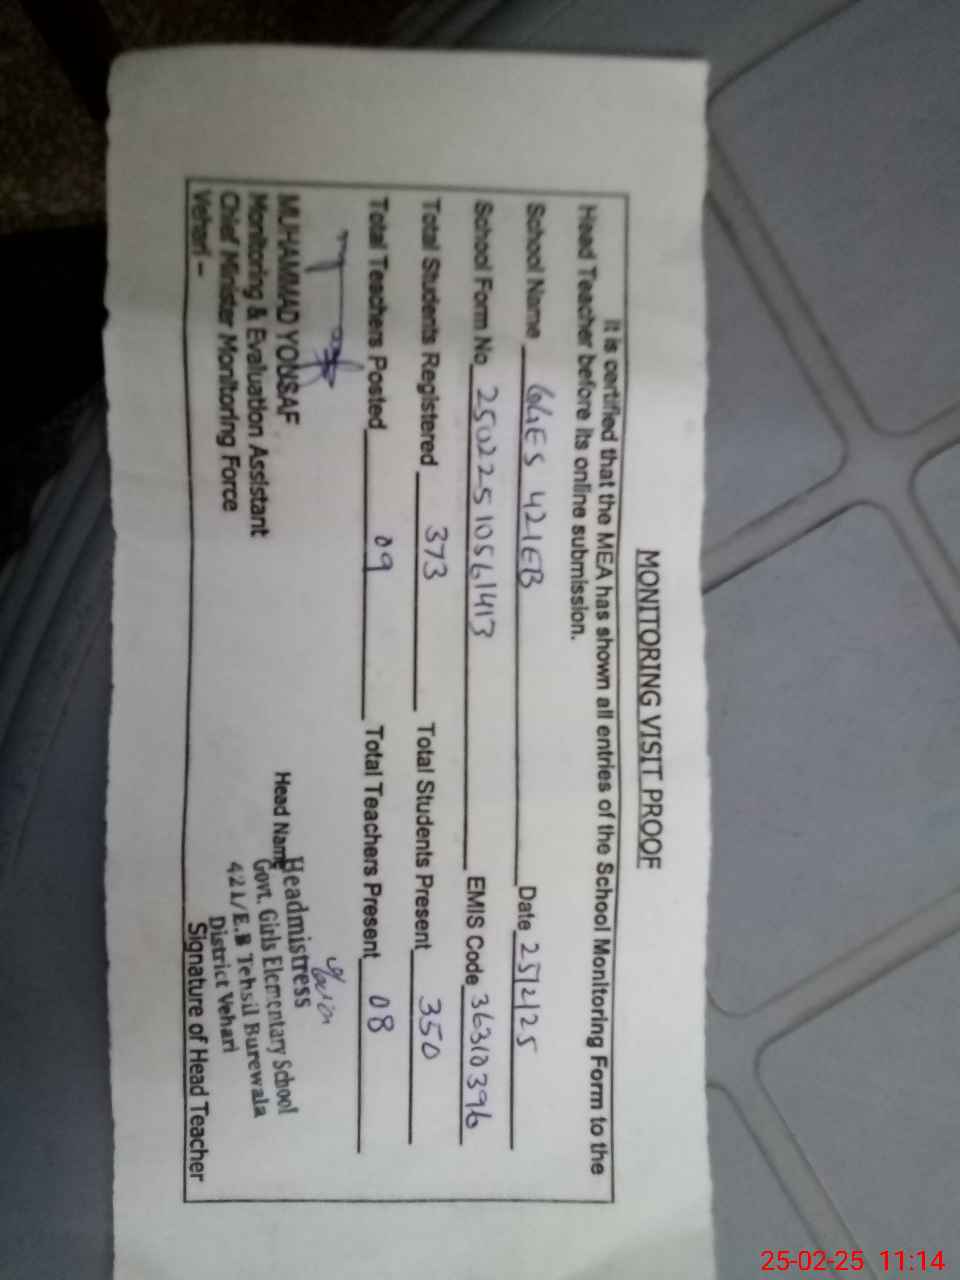 MONITORING VISIT PROOF
It is certified that the MEA has shown all entries of the School Monitoring Form to the
Head Teacher before its online submission.
School Name GGES 421EB Date 25/2/25
School Form No 25022510561413 EMIS Code 36310396
Total Students Registered 373 Total Students Present 350
Total Teachers Posted 09 Total Teachers Present 08
MUHAMMAD YOUSAF
Monitoring & Evaluation Assistant
Chief Minister Monitoring Force
Vehari –
Head Name
Headmistress
Govt. Girls Elementary School
421/E.B Tehsil Burewala
District Vehari
Signature of Head Teacher
25-02-25 11:14